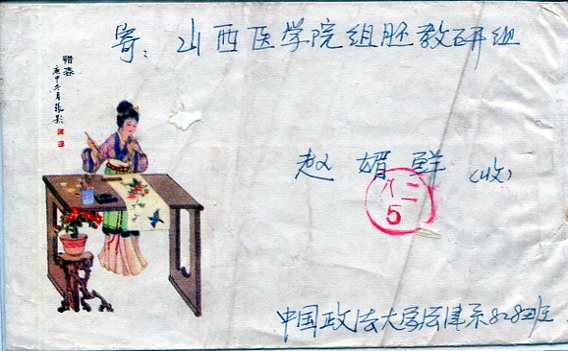 惜春
庚申冬月 張彭
寄：山西医学院组胚教研组
赵婿鲜（收）
八二
5
中国政法大学法律系828班